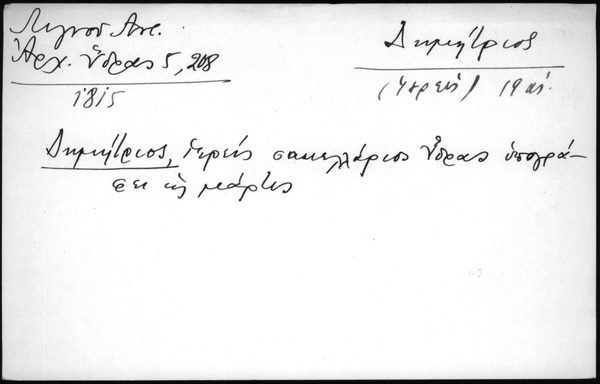 Λιγνού Αντ.
Ἀρχ. Ὕδρας 5, 208
1815
Δημήτριος
(ἱερεύς) 19 αἰ.
Δημήτριος, ἱερεύς σακελλάριος Ὕδρας ὑπογρά-
φει ὡς μάρτυς